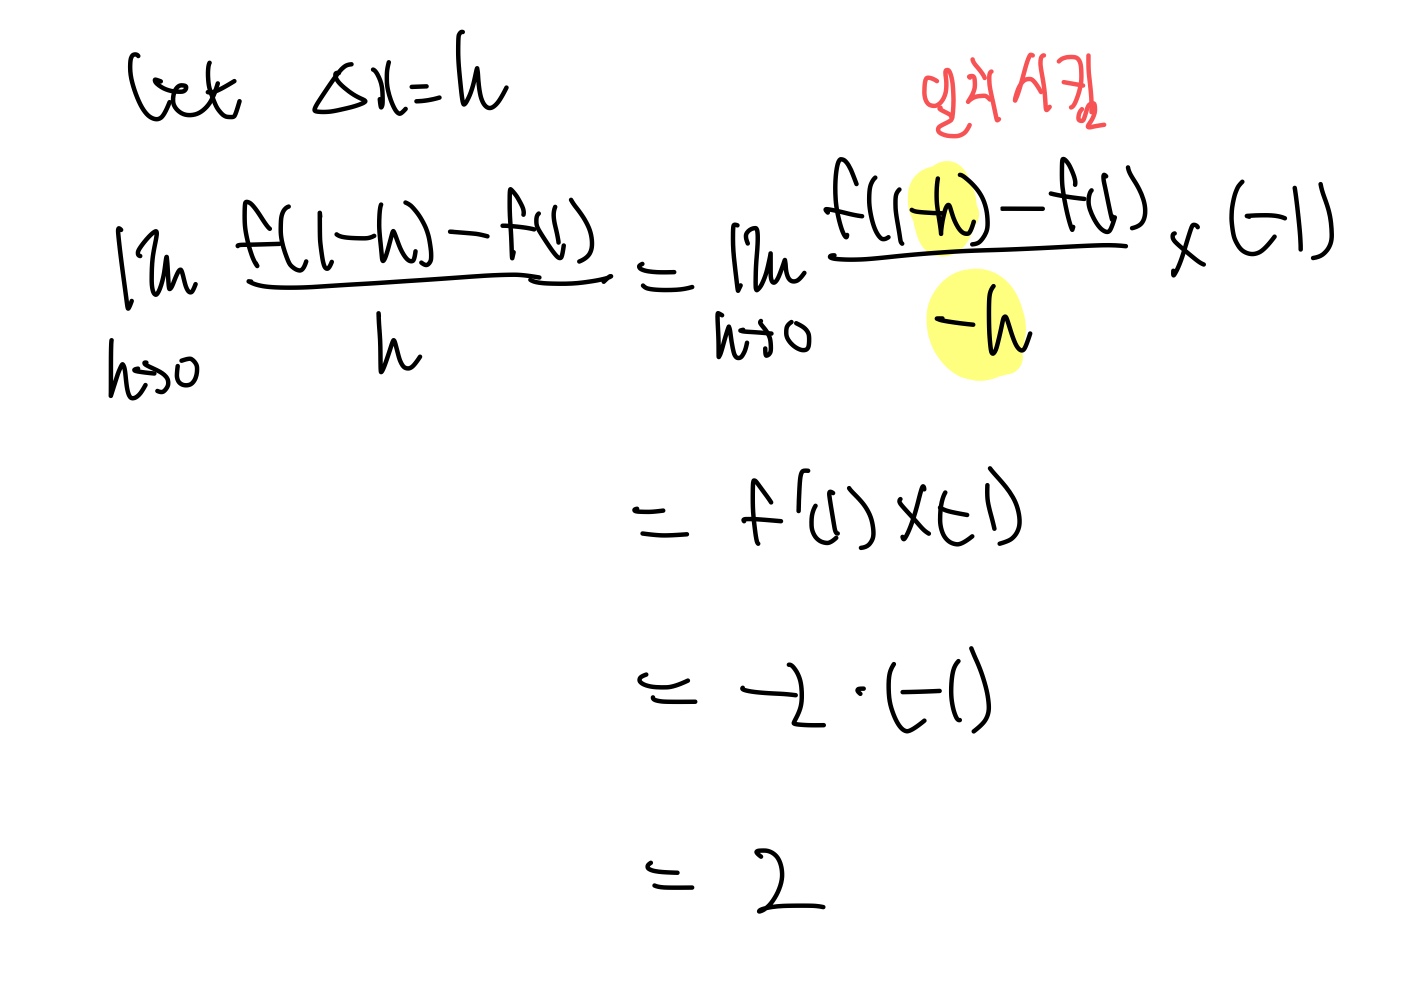 let Δx=h
일치시킴
lim h→0 f(1-h)-f(1) / h = lim h→0 f(1-h)-f(1) / -h × (-1)
= f'(1) ×(-1)
= -2 · (-1)
= 2